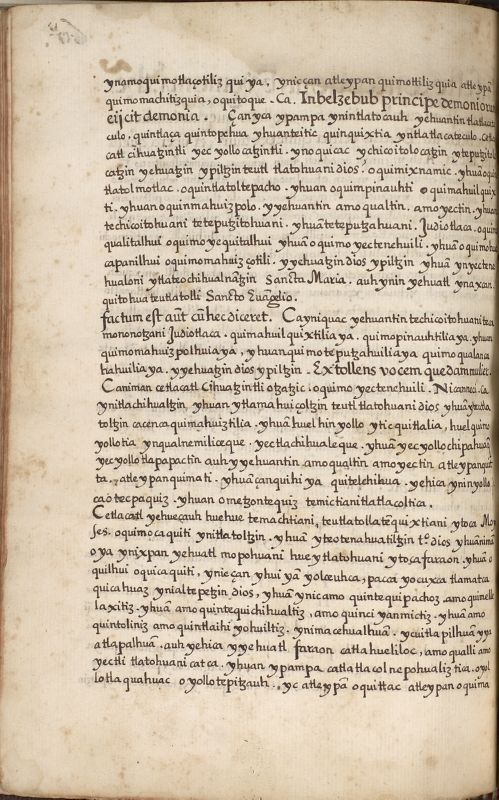 ynamoquimotlaçotiliz quiya, ynicçan atleypan quimottiliz quia atleypā
quimomachitizquia, oquitoque. Ca. Inbelzebub principe demonioru
eijcit demonia. Çanyca ypampa ynintlatocauh yehuantin tlatlacate
culo, quintlaça quintopehua yhuantzitic quinquixtia yntlatlacateculo. Cetla
catl cihuatzintli yec yollocatzintli. ynoquicac ychicoitolocatzin
catzin yehuatzin ypiltzin teutl tlatohuani dios, oquimixnamic. yhuā oqui
tlatolmotlac. oquintlatoltepacho. yhuan oquimpinauhti oquimahuilquix
ti. yhuan oquinmahuizpolo. yyehuantin amo qualtin. amo yectin. yhuan
techicoitohuani teteputzitohuani. yhuā teteputzahuani. Judiotlaca. oquim
qualitalhui oquimoyequitalhui yhuā oquimoyectenehuili. yhuā oquimohue
capanilhui oquinomahuiz çotili. yyehuatzin dios ypiltzin yhuā ynyectene
hualoni ytlateochihualnātzin Sancta Maria. auh ynin yehuatl ynaxcan
quitohua teutlatolli Sancto Euāgelio.
factum est aūt cū hec diceret. Cayniquac yehuantin techicoitohuani tea
mononotzani Judiotlaca. quimahuilquixtiliaya. quimopinauhtiliaya. yhuan
quimomahuizpolhuiaya, yhuan quimoteputzahuiliaya quimoqualanca
ytahuiliaya. yyehuatzin dios ypiltzin. Extollens vocem quedam mulier.
Caniman cetlacatl Cihuatzintli otzatzic. oquimoyectenehuili. Nicanneca. Ca
ynitlachihualtzin yhuan ytlamahuiçoltzin teutl tlatohuani dios yhuā
toltzin cacenca quimahuiztilia. yhuā huel hin yollo yticquitlalia, huel quimo
yollotia ynqualnemiliceque. yectlachihualeque. yhuā yecyollochipahuaq̄
yecyollotlapapactin auh yyehuantin amo qualtin amo yectin atleypan
ta. atleypan quimati. yhuā çanquihiya quitelchihua. yehica yninyollo
caōtecpaquiz. yhuan omeyontequiz temictianitlatlacoltica.
Cetlacatl yehuecauh huehue temachtiani, teutlatollatēquixtiani ytoca Moy
ses. oquimocaquiti ynitlatoltzin. yhuā yteotenahuatiltzin tō dios yhuānimā
oya ynixpan yehuatl mopohuani hueytlatohuani ytoca faraon. yhuā o
quilhui oquicaquiti, yniccan yhui yā yolceuhca, pacca yocuxca tlamatca
quicahuaz ynialtepetzin dios, yhuā ynicamo quintequipachoz. amo quinelle
laxitiz. yhuā amo quintequichihualtiz, amo quinci yanmictiz. yhuā amo
quintoliniz amo quintlaihi yohuiltiz. ynimacehualhuā. ycuitlapilhuā yyi
atlapalhuā. auh yehica yyehuatl faraon catlahueliloc, amo qualli amo
yectli tlatohuani catca. yhuan ypampa catlatlacolnepohualiztica. oyol
lotlaquahuac oyollotepitzauh. yc atleypā oquittac atleypan oquima